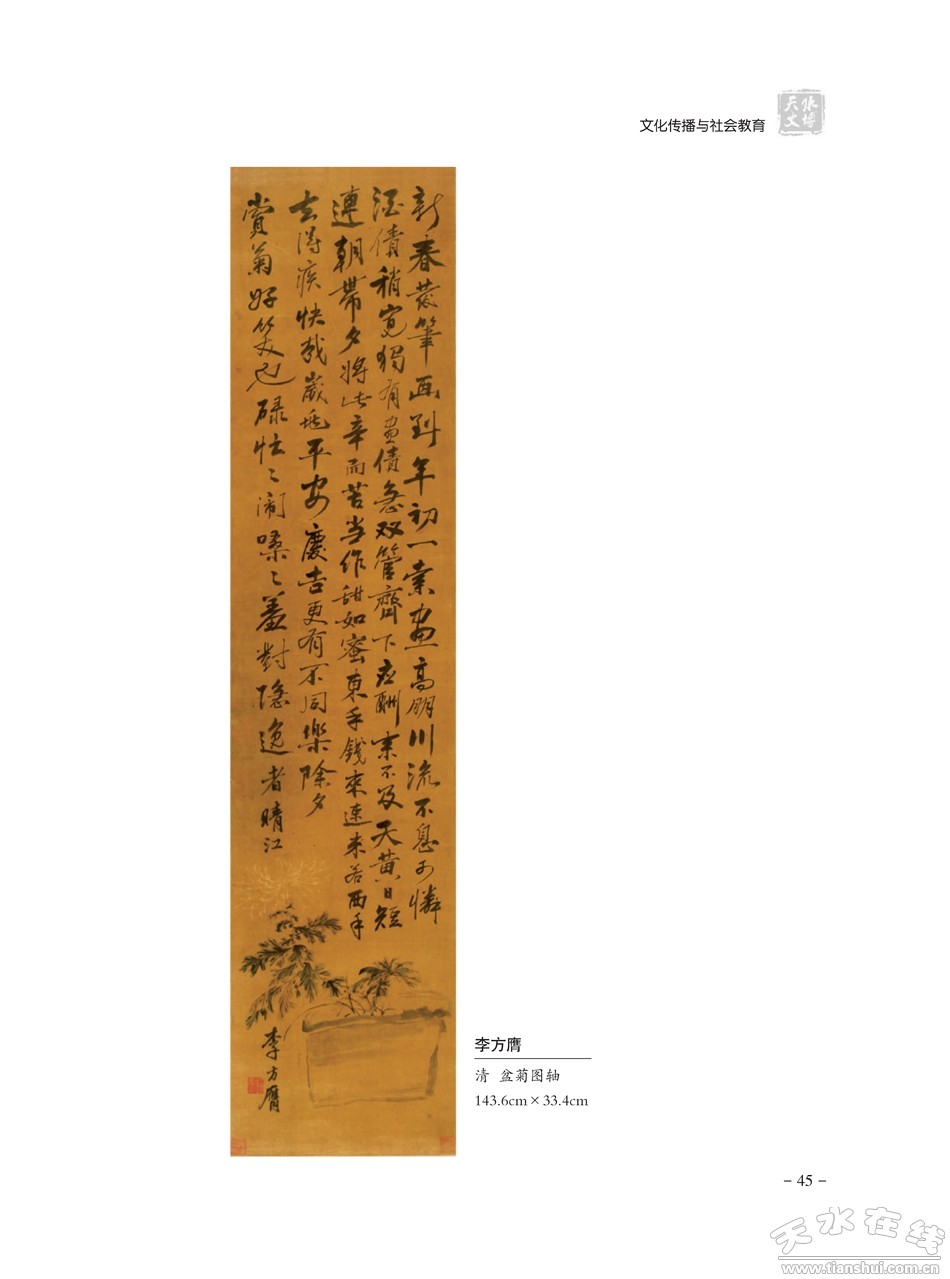 文化传播与社会教育
天水文博
新春發筆画到年初一索画高朋川流不息可憐
酒債稍寬獨有画債急双管齊下应酬来不及天黄日短
連朝帶夕将此辛而苦当作甜如蜜東手錢來速来若西手
去得疾快哉歲晚平安慶吉更有不同樂除夕
賞菊好笑也碌忙〻闹嚷〻羞對隐逸者晴江
李方膺
李方膺
清 盆菊图轴
143.6cm×33.4cm
- 45 -
天水在线
www.tianshui.com.cn